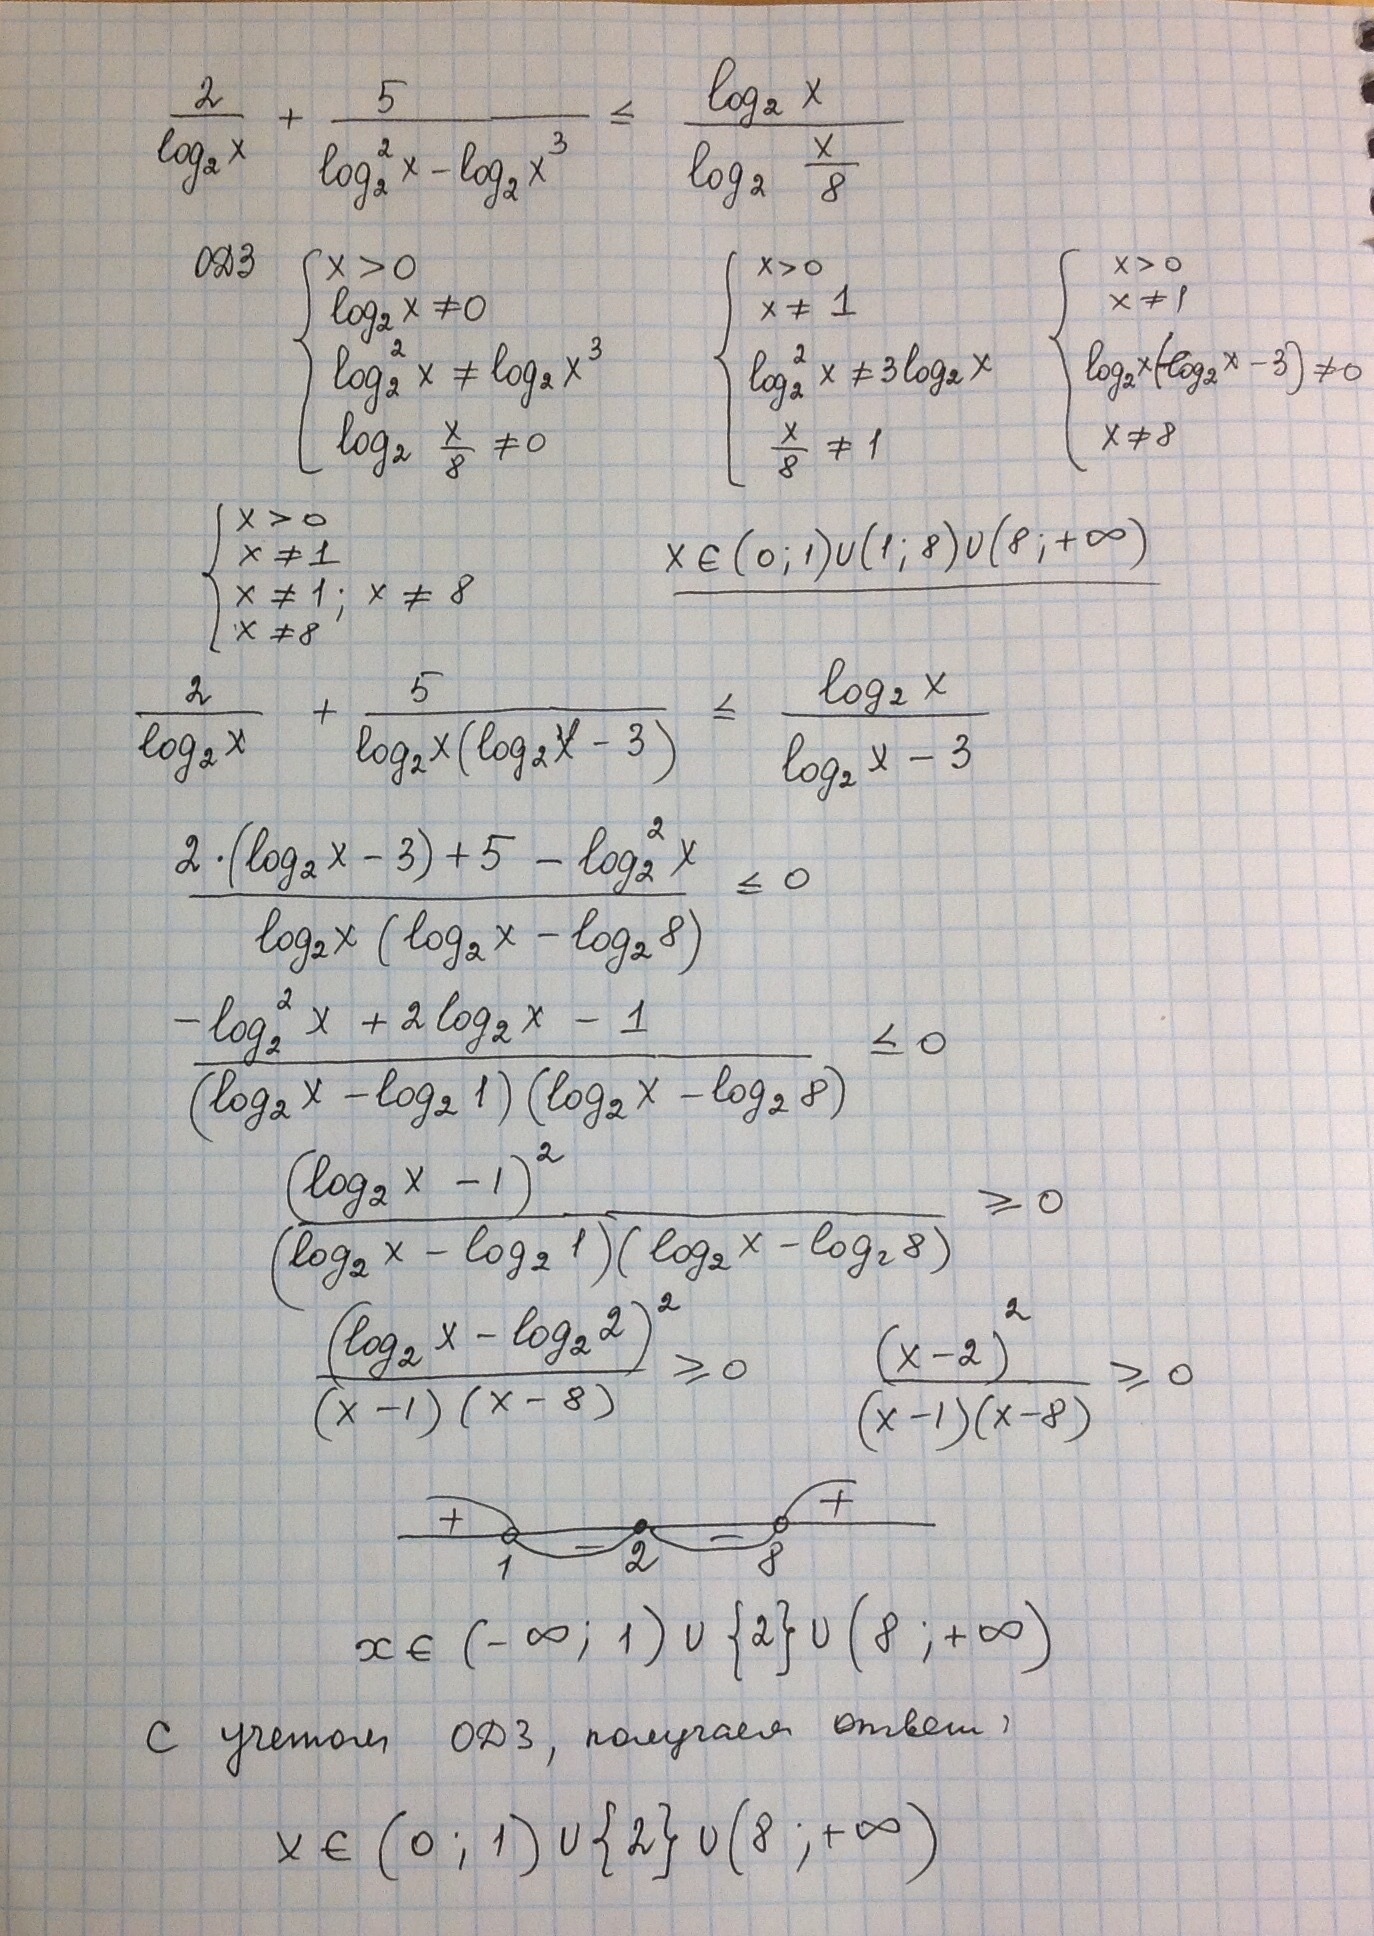 2/log₂x + 5/(log₂²x - log₂x³) ≤ log₂x/(log₂ x/8)
ОДЗ { x > 0 { x > 0 { x > 0
log₂x ≠ 0 x ≠ 1 x ≠ 1
log₂²x ≠ log₂x³ log₂²x ≠ 3log₂x log₂x(log₂x - 3) ≠ 0
log₂ x/8 ≠ 0 x/8 ≠ 1 x ≠ 8
{ x > 0
x ≠ 1
x ≠ 1; x ≠ 8
x ≠ 8
x ∈ (0; 1) ∪ (1; 8) ∪ (8; +∞)
2/log₂x + 5/(log₂x(log₂x - 3)) ≤ log₂x/(log₂x - 3)
(2·(log₂x - 3) + 5 - log₂²x)/(log₂x(log₂x - log₂8)) ≤ 0
(-log₂²x + 2log₂x - 1)/((log₂x - log₂1)(log₂x - log₂8)) ≤ 0
(log₂x - 1)²/((log₂x - log₂1)(log₂x - log₂8)) ≥ 0
(log₂x - log₂2)²/((x - 1)(x - 8)) ≥ 0 (x - 2)²/((x - 1)(x - 8)) ≥ 0
+ - - +
1 2 8
x ∈ (-∞; 1) ∪ {2} ∪ (8; +∞)
С учетом ОДЗ, получаем ответ:
x ∈ (0; 1) ∪ {2} ∪ (8; +∞)